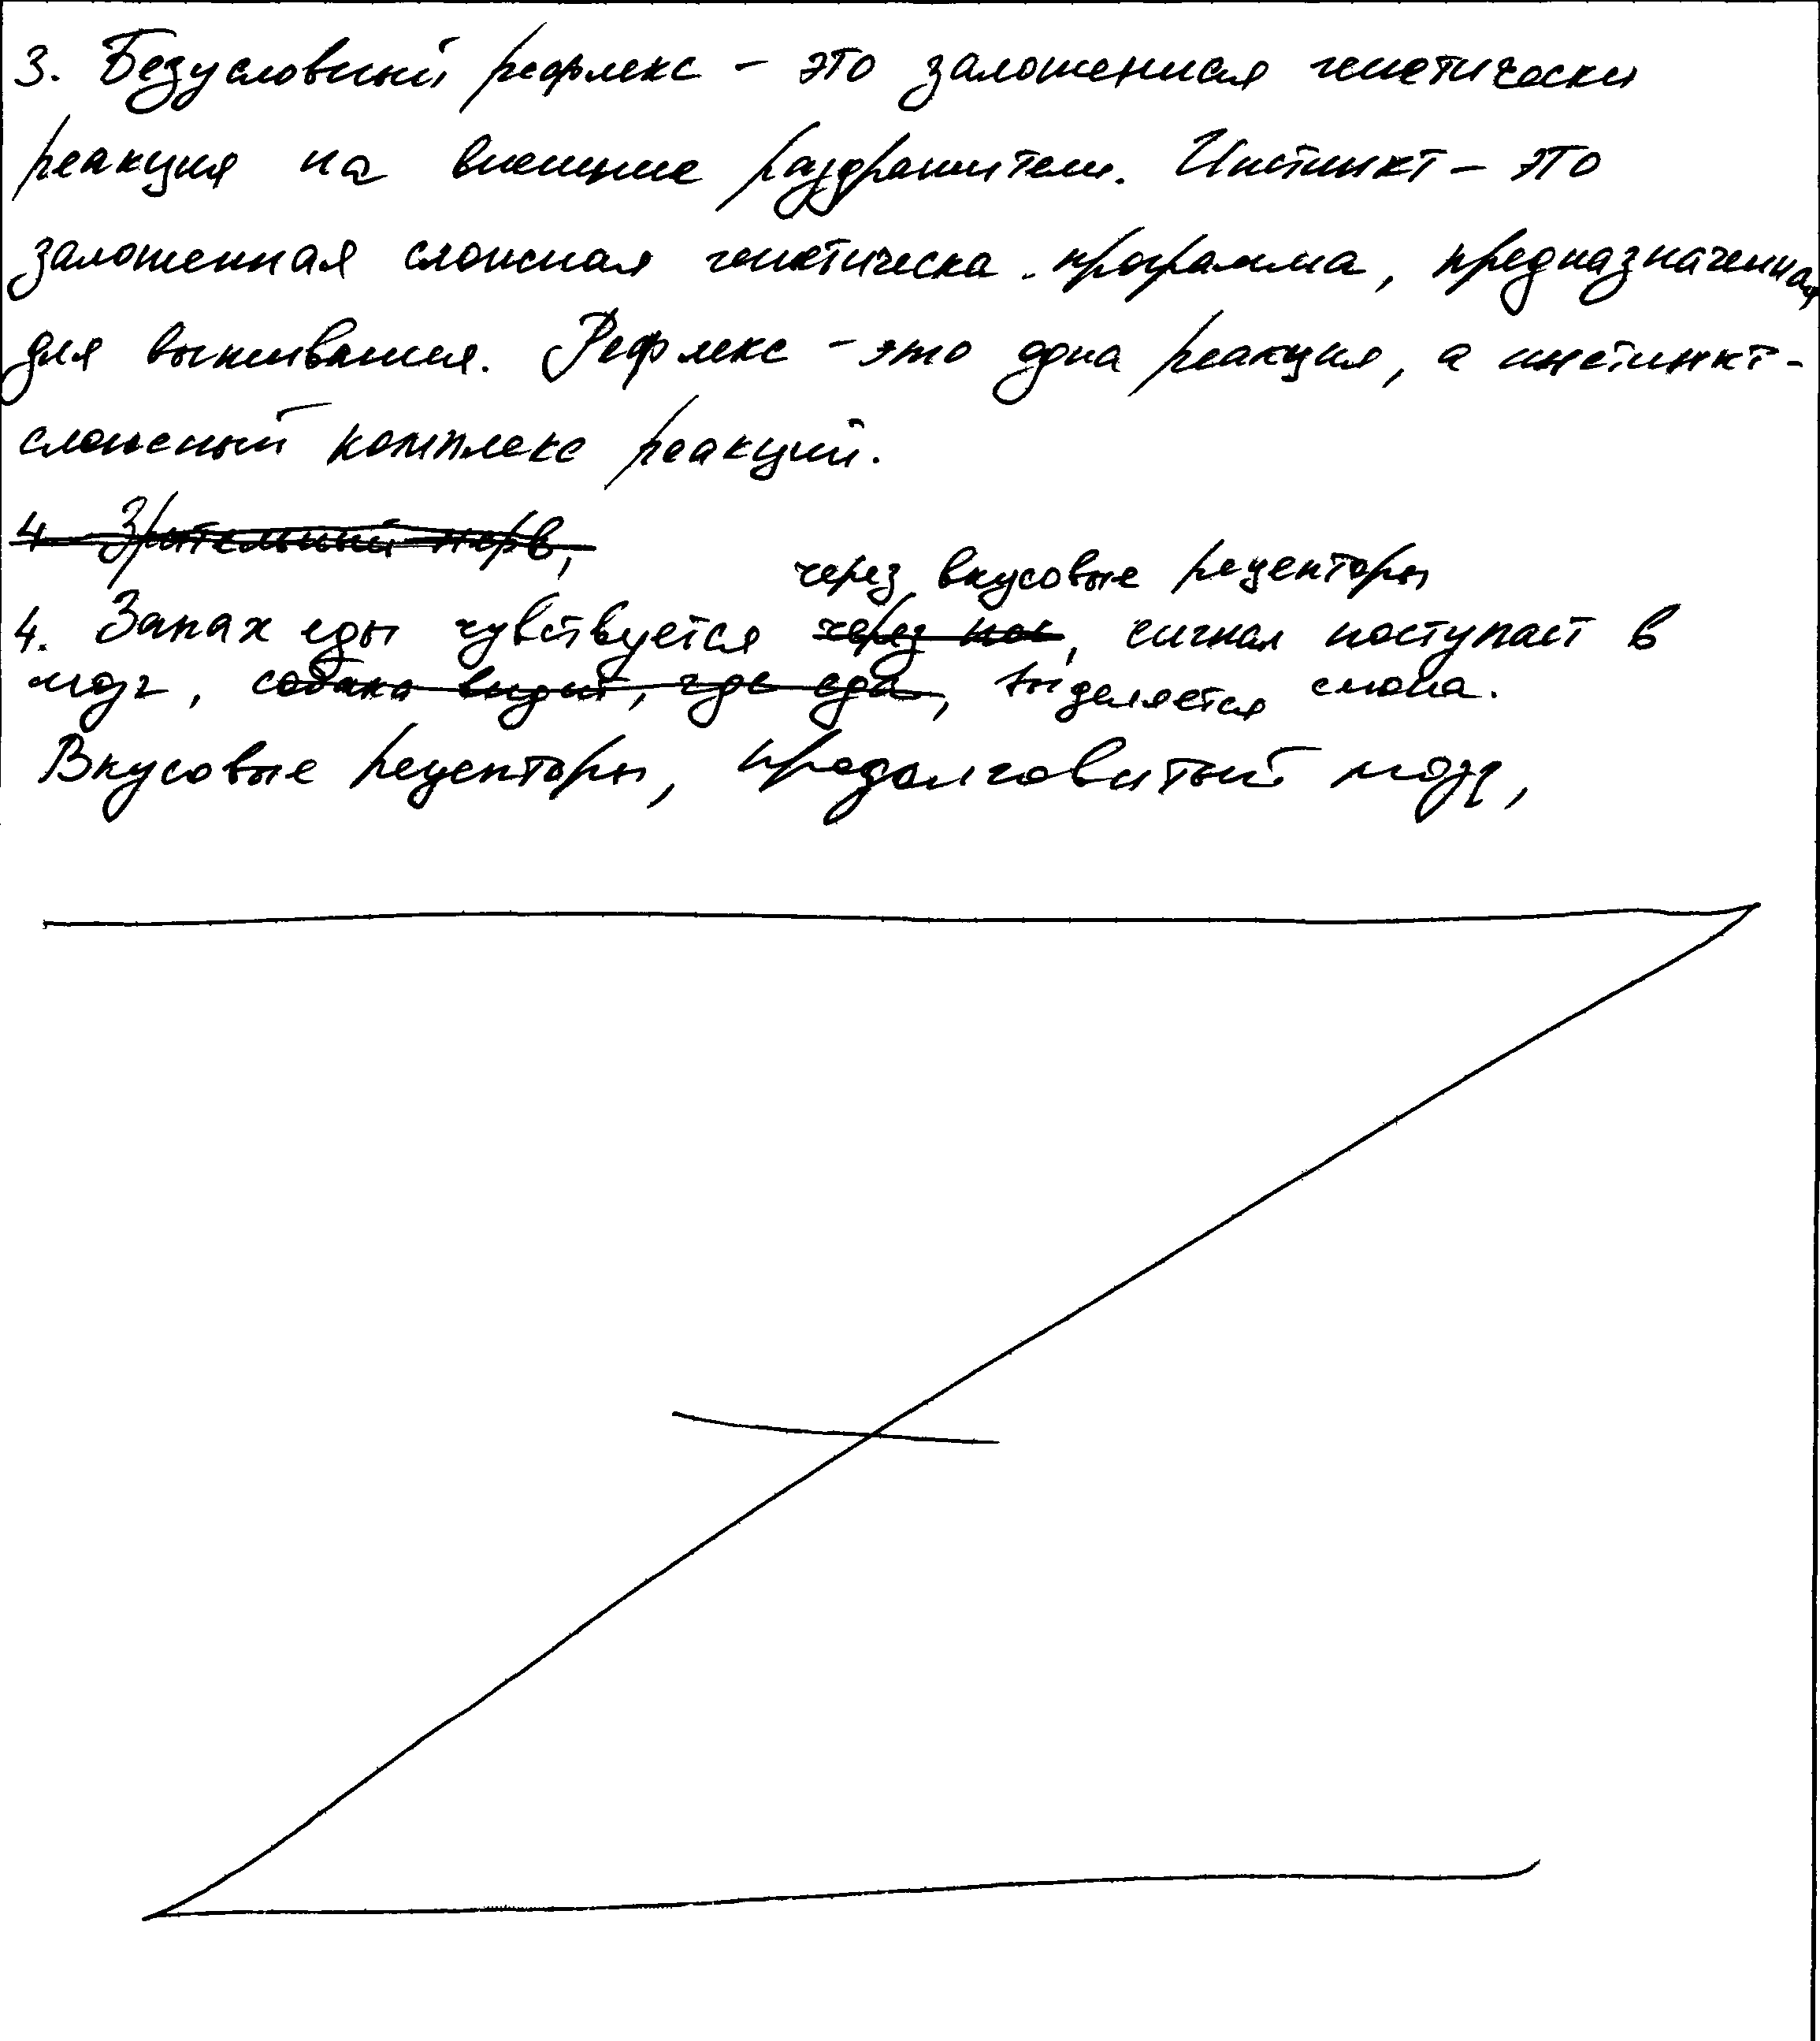 3. Безусловный рефлекс - это заложенная генетически
реакция на внешние раздражители. Инстинкт - это
заложенная сложная генетическа программа, предназначенная
для выживания. Рефлекс - это одна реакция, а инстинкт -
сложный комплекс реакций.
4. Зрительный нерв,
через вкусовые рецепторы
4. Запах еды чувствуется через нос, сигнал поступает в
мозг, собака видит, где еда, выделяется слюна.
Вкусовые рецепторы, продолговатый мозг,